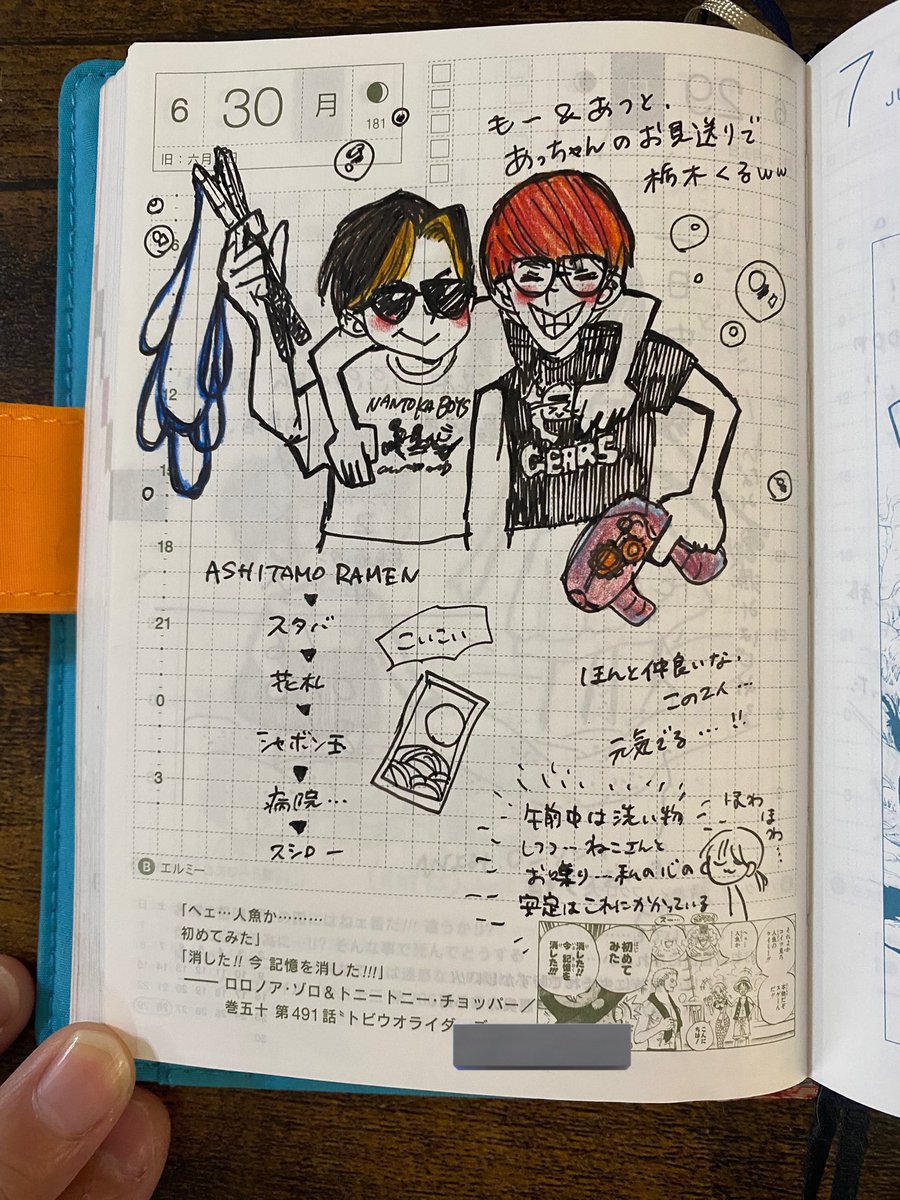 6 30 月
181
旧:六月
もー&あっと、
あっちゃんのお見送りで
栃木くるww
NANTOKA BOYS
GEARS
12
18
21
0
3
ASHITAMO RAMEN
▼
スタバ
▼
花札
▼
シャボン玉
▼
病院…
▼
スシロー
こいこい
ほんと仲良いな、
この2人…
元気でる…!!
午前中は洗い物
しつつーねこさんと
お喋り…私の心の
安定はこれにかかっている
ほわ
ほわ…
B エルミー
「ヘェ…人魚か………
初めてみた」
「消した!! 今 記憶を消した!!!」
—— ロロノア・ゾロ&トニートニー・チョッパー
巻五十 第491話〝トビウオライダ
初めて
みた
消した!!
今 記憶を
消した!!!
7